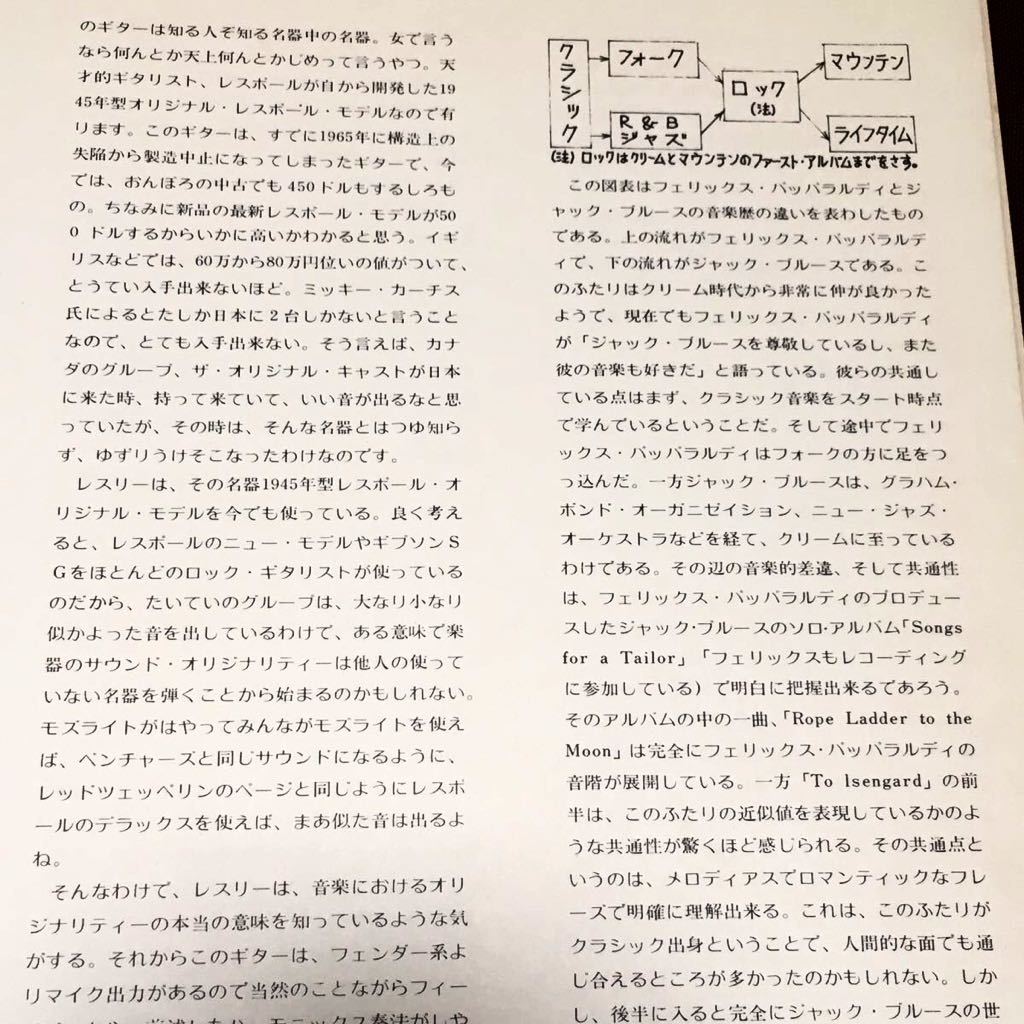 のギターは知る人ぞ知る名器中の名器。女で言う
なら何んとか天上何んとかじめって言うやつ。天
才的ギタリスト、レスポールが自から開発した19
45年型オリジナル・レスポール・モデルなので有
ります。このギターは、すでに1965年に構造上の
失陥から製造中止になってしまったギターで、今
では、おんぼろの中古でも450ドルもするしろも
の。ちなみに新品の最新レスポール・モデルが50
0 ドルするからいかに高いかわかると思う。イギ
リスなどでは、60万から80万円位いの値がついて、
とうてい入手出来ないほど。ミッキー・カーチス
氏によるとたしか日本に2台しかないと言うこと
なので、とても入手出来ない。そう言えば、カナ
ダのグループ、ザ・オリジナル・キャストが日本
に来た時、持って来ていて、いい音が出るなと思
っていたが、その時は、そんな名器とはつゆ知ら
ず、ゆずりうけそこなったわけなのです。
レスリーは、その名器1945年型レスポール・オ
リジナル・モデルを今でも使っている。良く考え
ると、レスポールのニュー・モデルやギブソンS
Gをほとんどのロック・ギタリストが使っている
のだから、たいていのグループは、大なり小なり
似かよった音を出しているわけで、ある意味で楽
器のサウンド・オリジナリティーは他人の使って
いない名器を弾くことから始まるのかもしれない。
モズライトがはやってみんながモズライトを使え
ば、ベンチャーズと同じサウンドになるように、
レッドツェッペリンのページと同じようにレスポ
ールのデラックスを使えば、まあ似た音は出るよ
ね。
そんなわけで、レスリーは、音楽におけるオリ
ジナリティーの本当の意味を知っているような気
がする。それからこのギターは、フェンダー系よ
りマイク出力があるので当然のことながらフィー
クラシック
フォーク
R&B
ジャズ
ロック
(注)
マウンテン
ライフタイム
(注)ロックはクリームとマウンテンのファースト・アルバムまでをさす。
この図表はフェリックス・パッパラルディとジ
ャック・ブルースの音楽歴の違いを表わしたもの
である。上の流れがフェリックス・パッパラルデ
ィで、下の流れがジャック・ブルースである。こ
のふたりはクリーム時代から非常に仲が良かった
ようで、現在でもフェリックス・パッパラルディ
が「ジャック・ブルースを尊敬しているし、また
彼の音楽も好きだ」と語っている。彼らの共通し
ている点はまず、クラシック音楽をスタート時点
で学んでいるということだ。そして途中でフェリ
ックス・パッパラルディはフォークの方に足をつ
っ込んだ。一方ジャック・ブルースは、グラハム・
ボンド・オーガニゼイション、ニュー・ジャズ・
オーケストラなどを経て、クリームに至っている
わけである。その辺の音楽的差違、そして共通性
は、フェリックス・パッパラルディのプロデュー
スしたジャック・ブルースのソロ・アルバム「Songs
for a Tailor」「フェリックスもレコーディング
に参加している)で明白に把握出来るであろう。
そのアルバムの中の一曲、「Rope Ladder to the
Moon」は完全にフェリックス・パッパラルディの
音階が展開している。一方「To Isengard」の前
半は、このふたりの近似値を表現しているかのよ
うな共通性が驚くほど感じられる。その共通点と
いうのは、メロディアスでロマンティックなフレ
ーズで明確に理解出来る。これは、このふたりが
クラシック出身ということで、人間的な面でも通
じ合えるところが多かったのかもしれない。しか
し、後半に入ると完全にジャック・ブルースの世